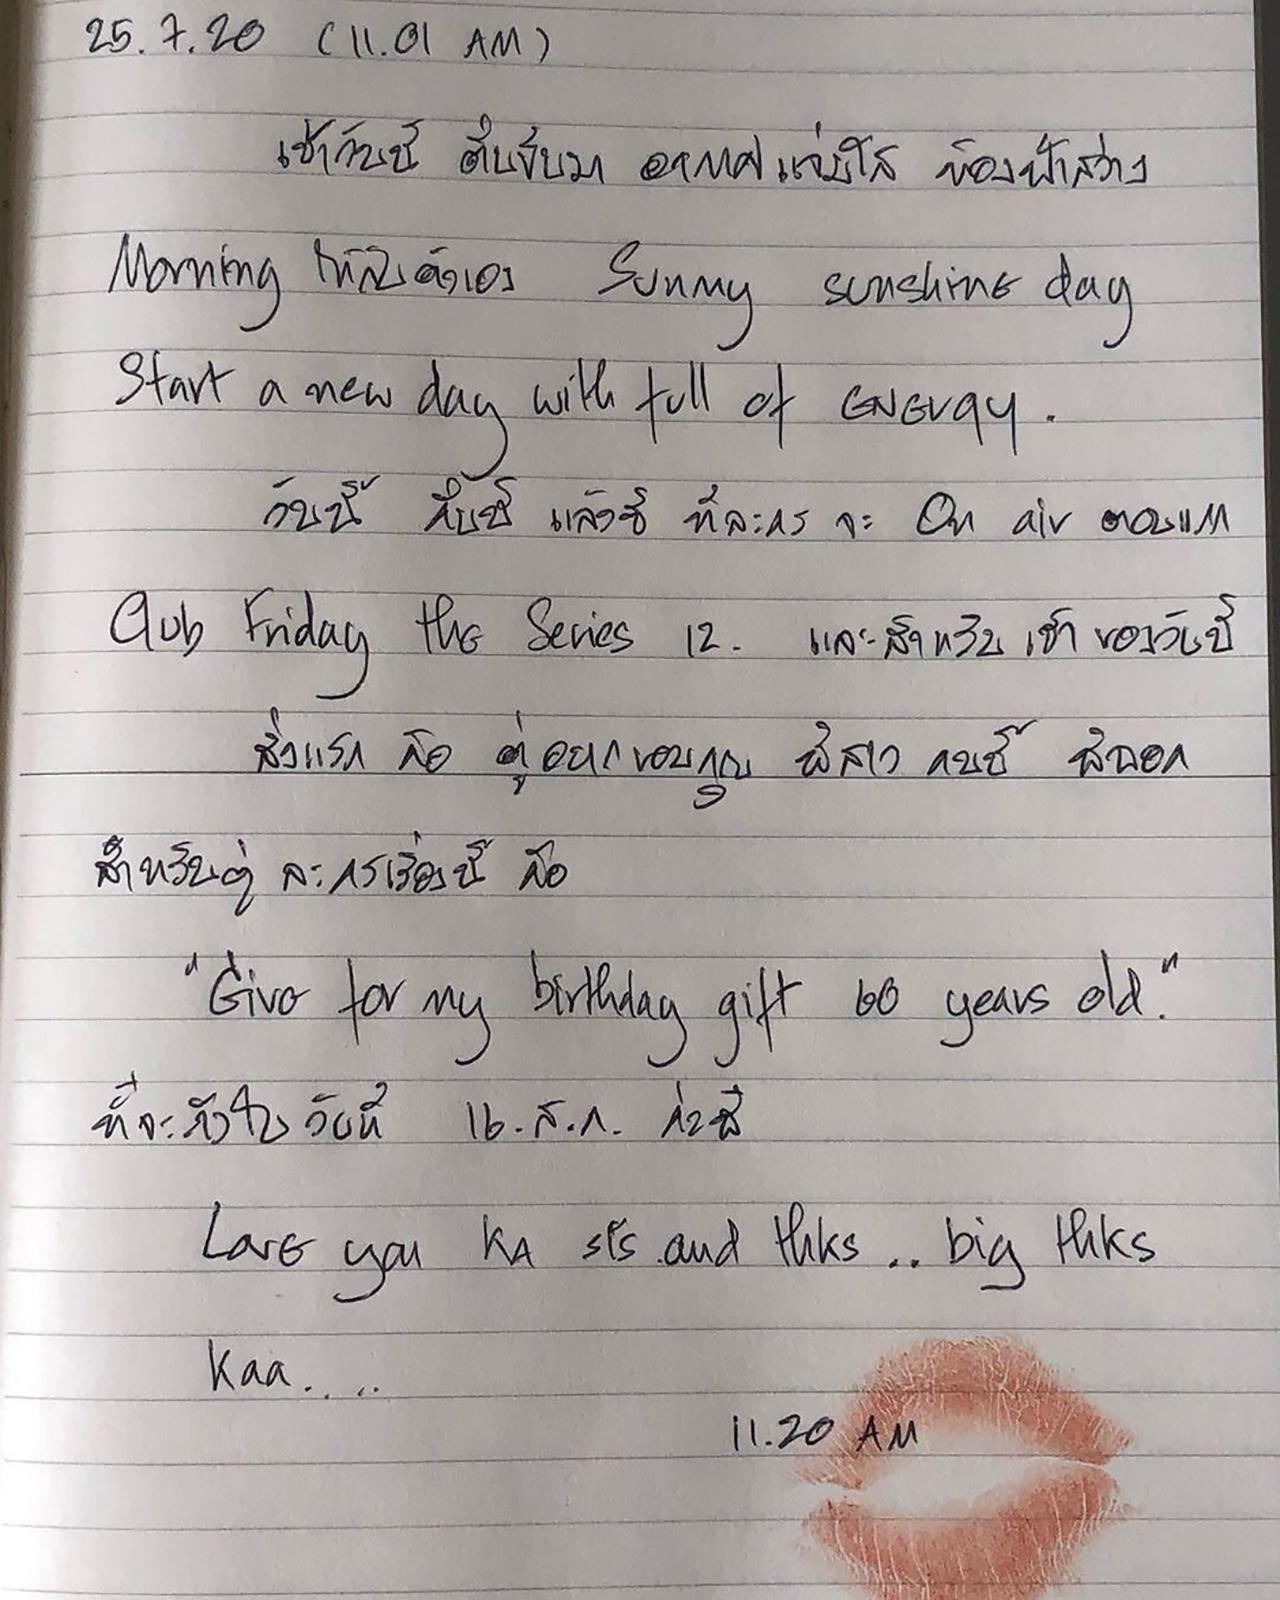 25.7.20 (11.01 AM)
เช้าวันนี้ ตื่นขึ้นมา อากาศแจ่มใส ท้องฟ้าสว่าง
Morning ให้กับตัวเอง Sunny sunshine day
Start a new day with full of energy.
วันนี้ คืนนี้ แล้วซิ ที่ละคร จะ On air ตอนแรก
Club Friday the Series 12. และสำหรับ เช้า ของวันนี้
สิ่งแรก คือ ตู่ อยากขอบคุณ พี่สาว คนนี้ พี่ฉอด
สำหรับตู่ ละครเรื่องนี้ คือ
"Give for my birthday gift 60 years old."
ที่จะถึงใน วันที่ 16.ส.ค. ค่ะพี่
Love you KA sis and thks .. big thks
Kaa.. ..
11.20 AM